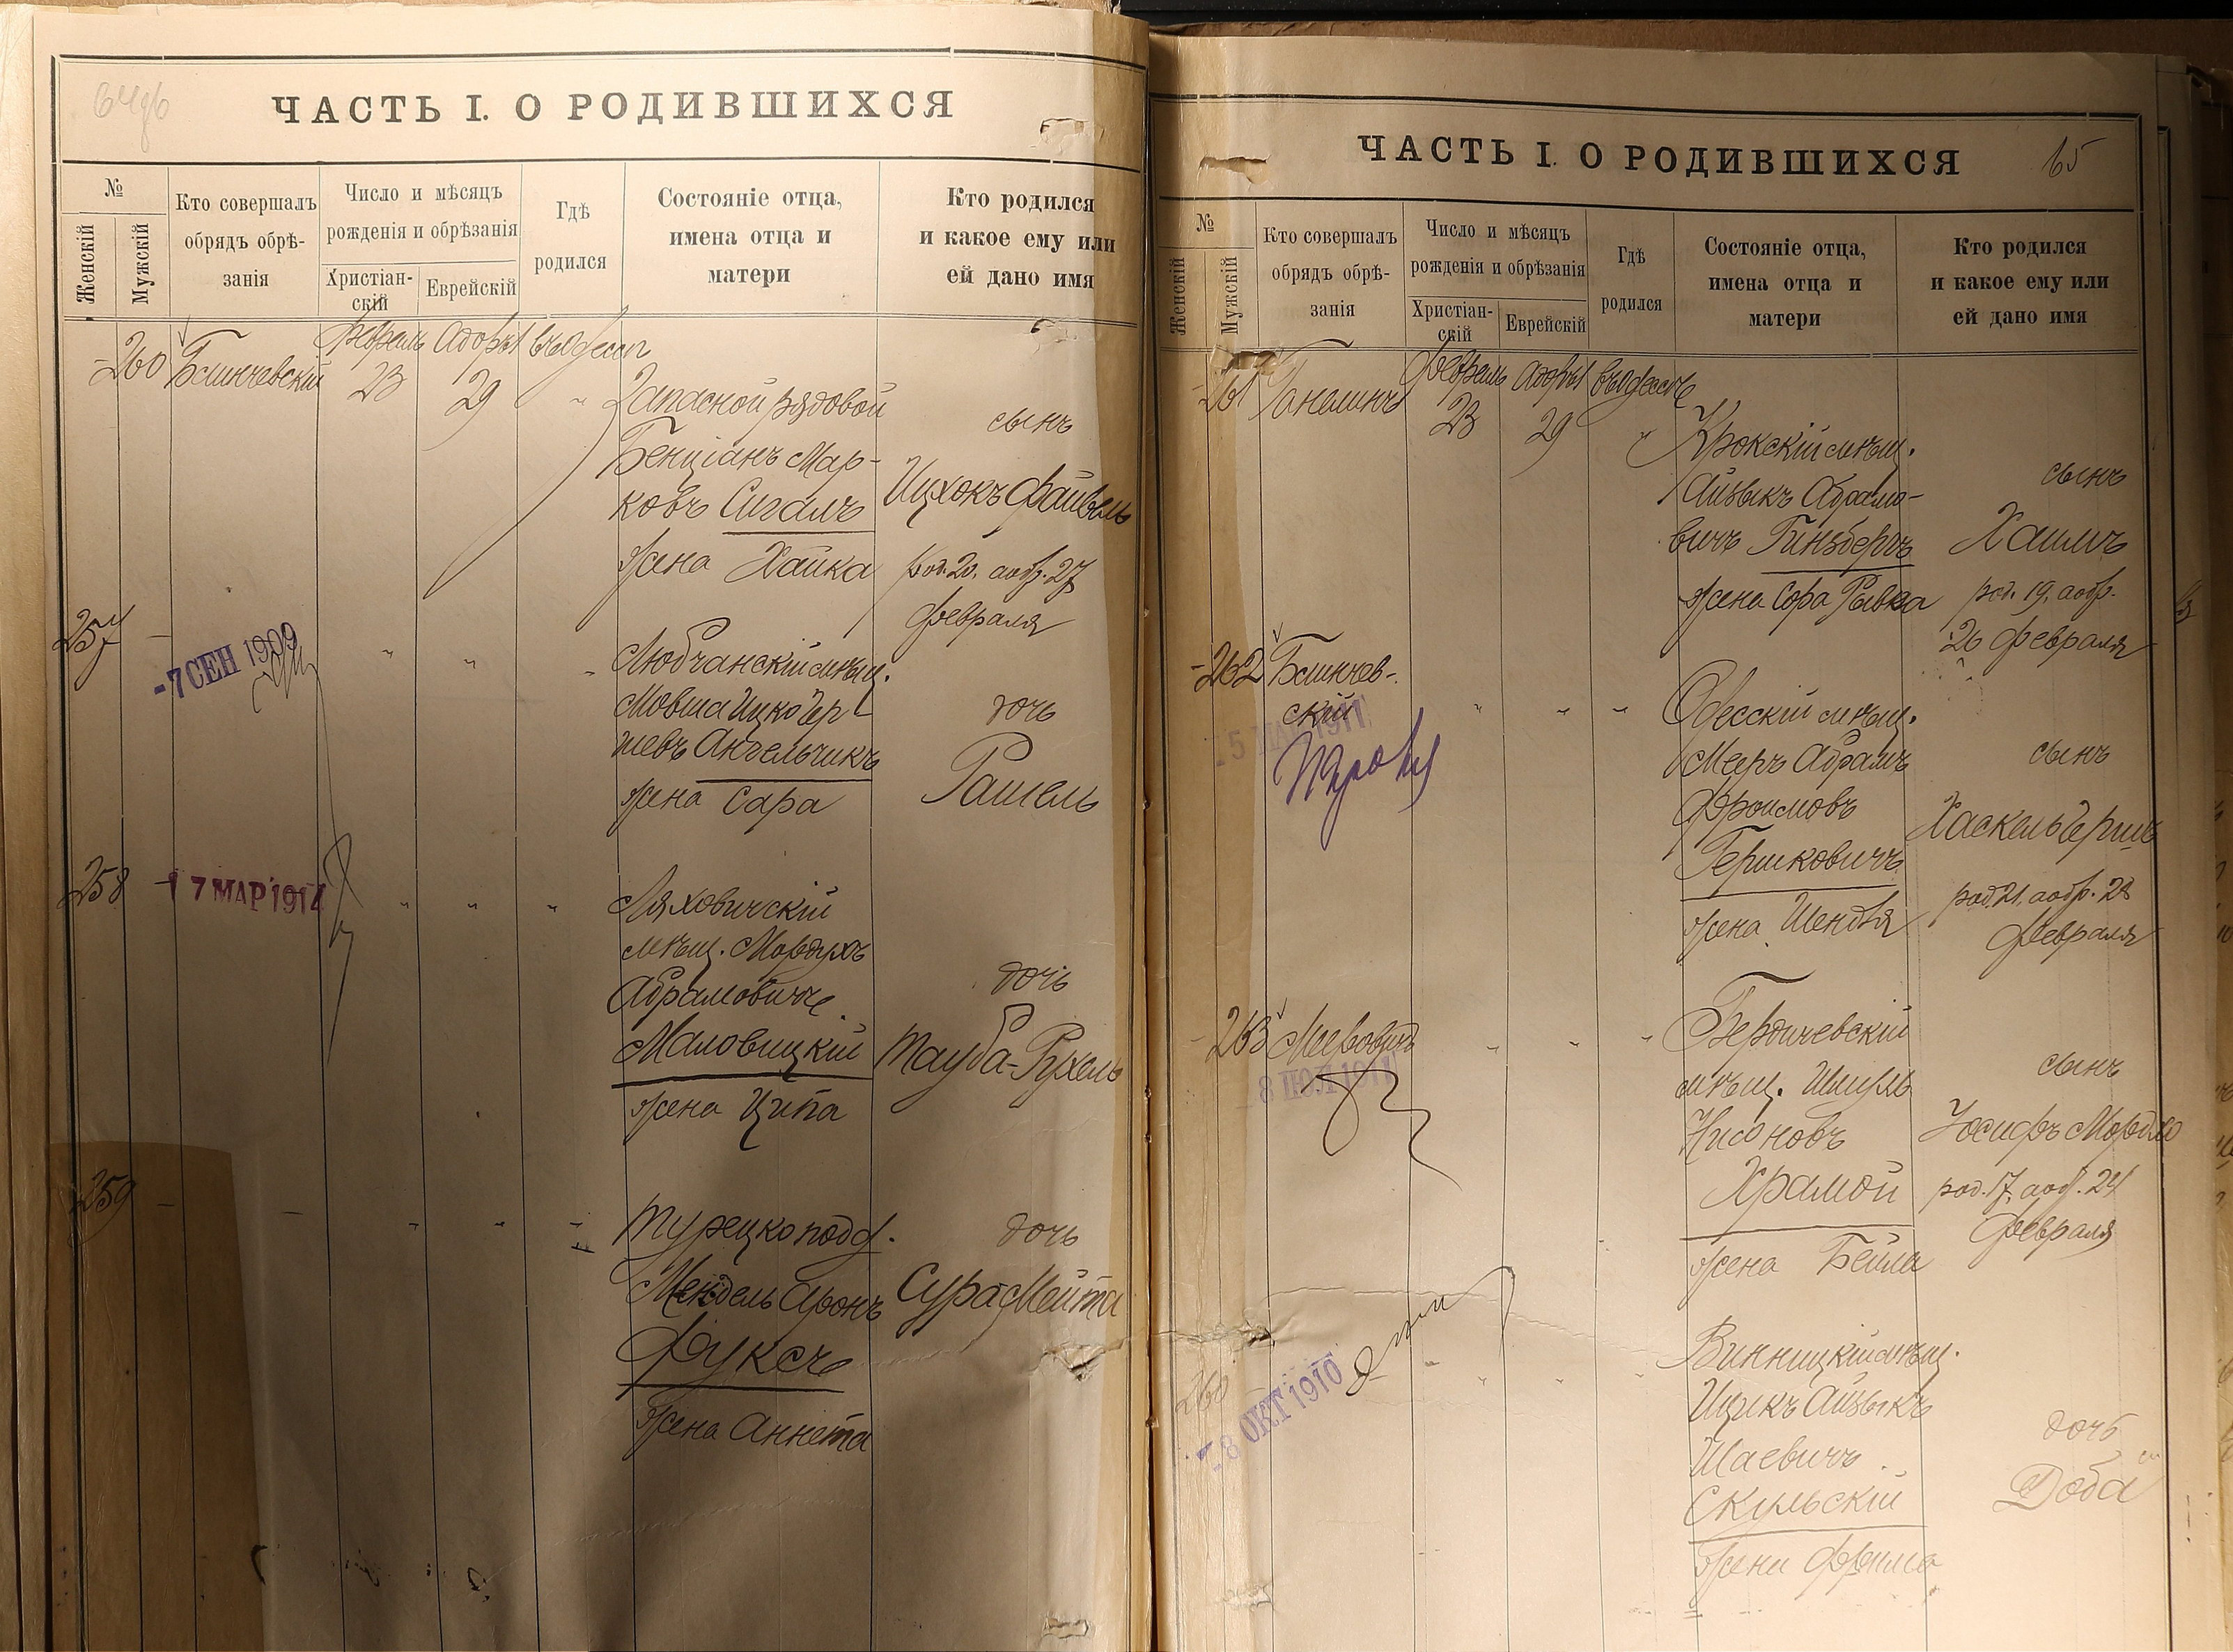 64об
ЧАСТЬ I. О РОДИВШИХСЯ
№
Женскій
Мужскій
Кто совершалъ
обрядъ обрѣ-
занія
Число и мѣсяцъ
рожденія и обрѣзанія
Христіан-
скій
Еврейскій
Гдѣ
родился
Состояніе отца,
имена отца и
матери
Кто родился
и какое ему или
ей дано имя
260
Февраль Адаръ1 въ Одессѣ
23
29
Запасной рядовой
Бенціанъ Мар-
ковъ Сигалъ
жена Хайка
сынъ
Ицхокъ Файвель
род. 20, аобр. 27
февраля
257
-7 СЕН 1909
Любчанскій мѣщ.
Мовша Ицко Гер-
шевъ Ангельчикъ
жена Сара
дочь
Рашель
258
17 МАР 1914
Ляховичскій
мѣщ. Мордухъ
Абрамовичъ
Маловицкій
жена Ципа
дочь
Тауба-Рухель
259
Турецкоподд.
Мендель Аронъ
Фуксъ
жена Аннета
дочь
Сура Мейта
65
ЧАСТЬ I. О РОДИВШИХСЯ
№
Женскій
Мужскій
Кто совершалъ
обрядъ обрѣ-
занія
Число и мѣсяцъ
рожденія и обрѣзанія
Христіан-
скій
Еврейскій
Гдѣ
родился
Состояніе отца,
имена отца и
матери
Кто родился
и какое ему или
ей дано имя
261
Ганелинъ
Февраль Адаръ1 въ Одессѣ
23
29
Крокскій мѣщ.
Айзыкъ Абрамо-
вичъ Гинзбергъ
жена Сора Рывка
сынъ
Хаимъ
род. 19, аобр.
26 февраля
262
Одесскій мѣщ.
Мееръ Абрамъ
Фроимовъ
Гершковичъ
жена Шендля
сынъ
Хаскель Гершъ
род. 21, аобр. 28
февраля
263
8 ІЮЛ 1911
Бердичевскій
мѣщ. Шмуль
Нисоновъ
Храмой
жена Бейла
сынъ
Іосифъ Мордко
род. 17, аоб. 24
февраля
260
-8 ОКТ 1910
Винницкій мѣщ.
Ицикъ Айзыкъ
Шаевичъ
Скульскій
жена
дочь
Доба